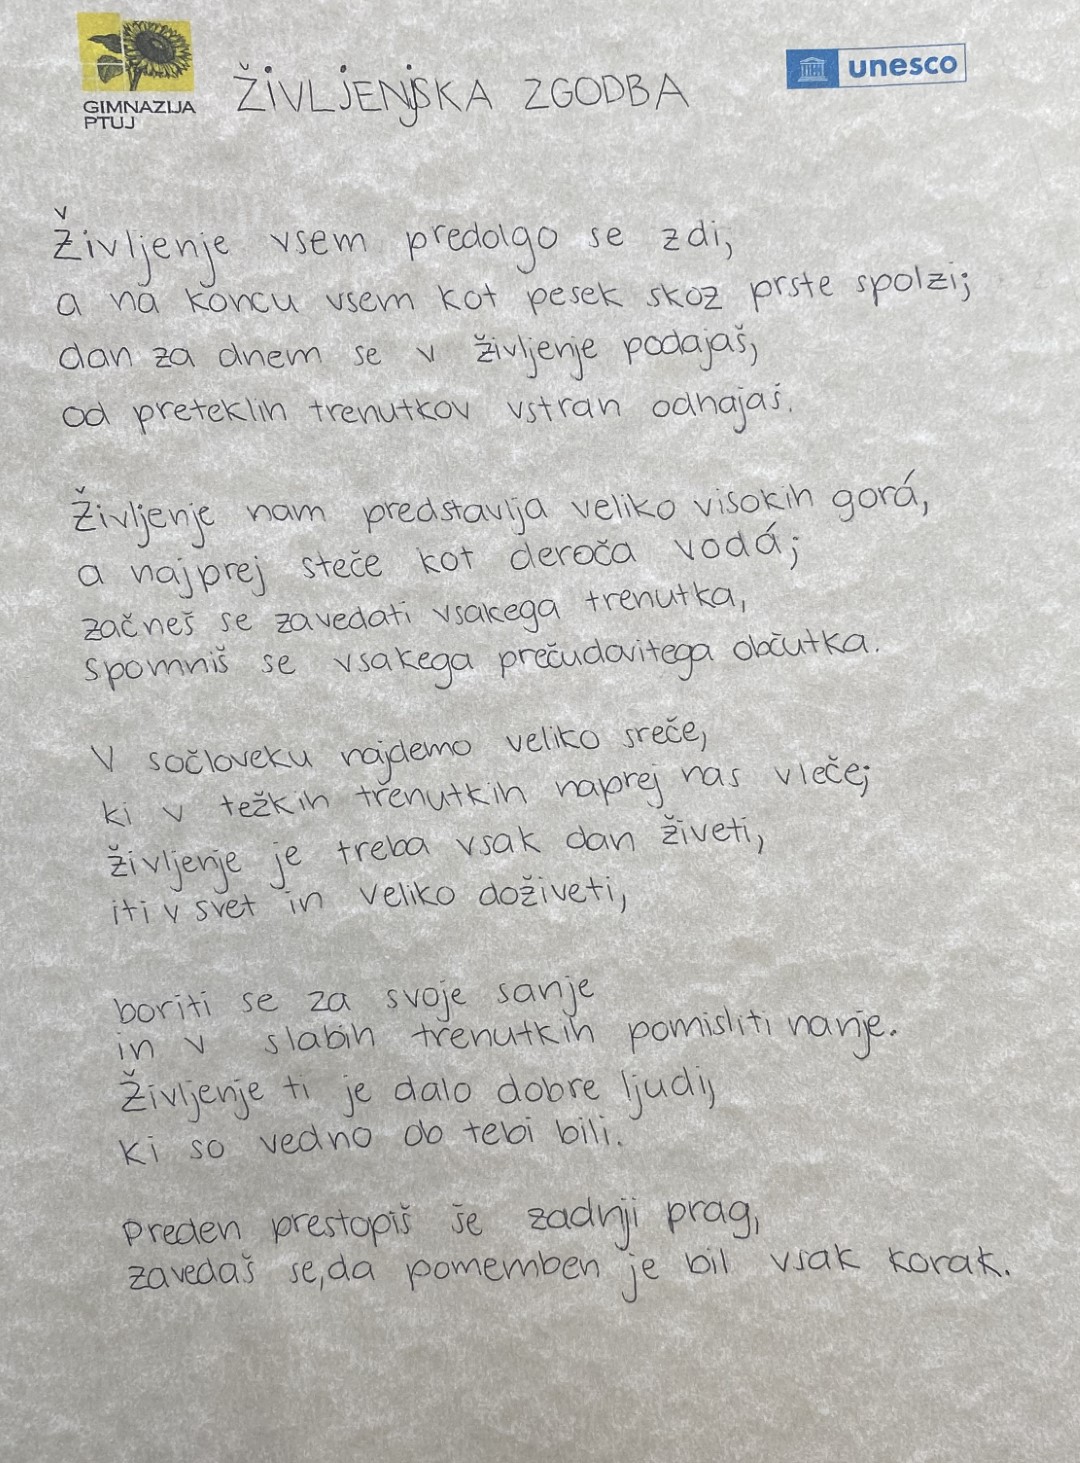 GIMNAZIJA
PTUJ
ŽIVLJENJSKA ZGODBA
unesco
Življenje vsem predolgo se zdi,
a na koncu vsem kot pesek skoz prste spolzi;
dan za dnem se v življenje podajaš,
od preteklih trenutkov vstran odhajaš.
Življenje nam predstavlja veliko visokih gorá,
a najprej steče kot deroča vodá;
začneš se zavedati vsakega trenutka,
spomniš se vsakega prečudovitega občutka.
V sočloveku najdemo veliko sreče,
ki v težkih trenutkih naprej nas vleče;
življenje je treba vsak dan živeti,
iti v svet in veliko doživeti,
boriti se za svoje sanje
in v slabih trenutkih pomisliti nanje.
Življenje ti je dalo dobre ljudi,
ki so vedno ob tebi bili.
Preden prestopiš še zadnji prag,
zavedaš se, da pomemben je bil vsak korak.